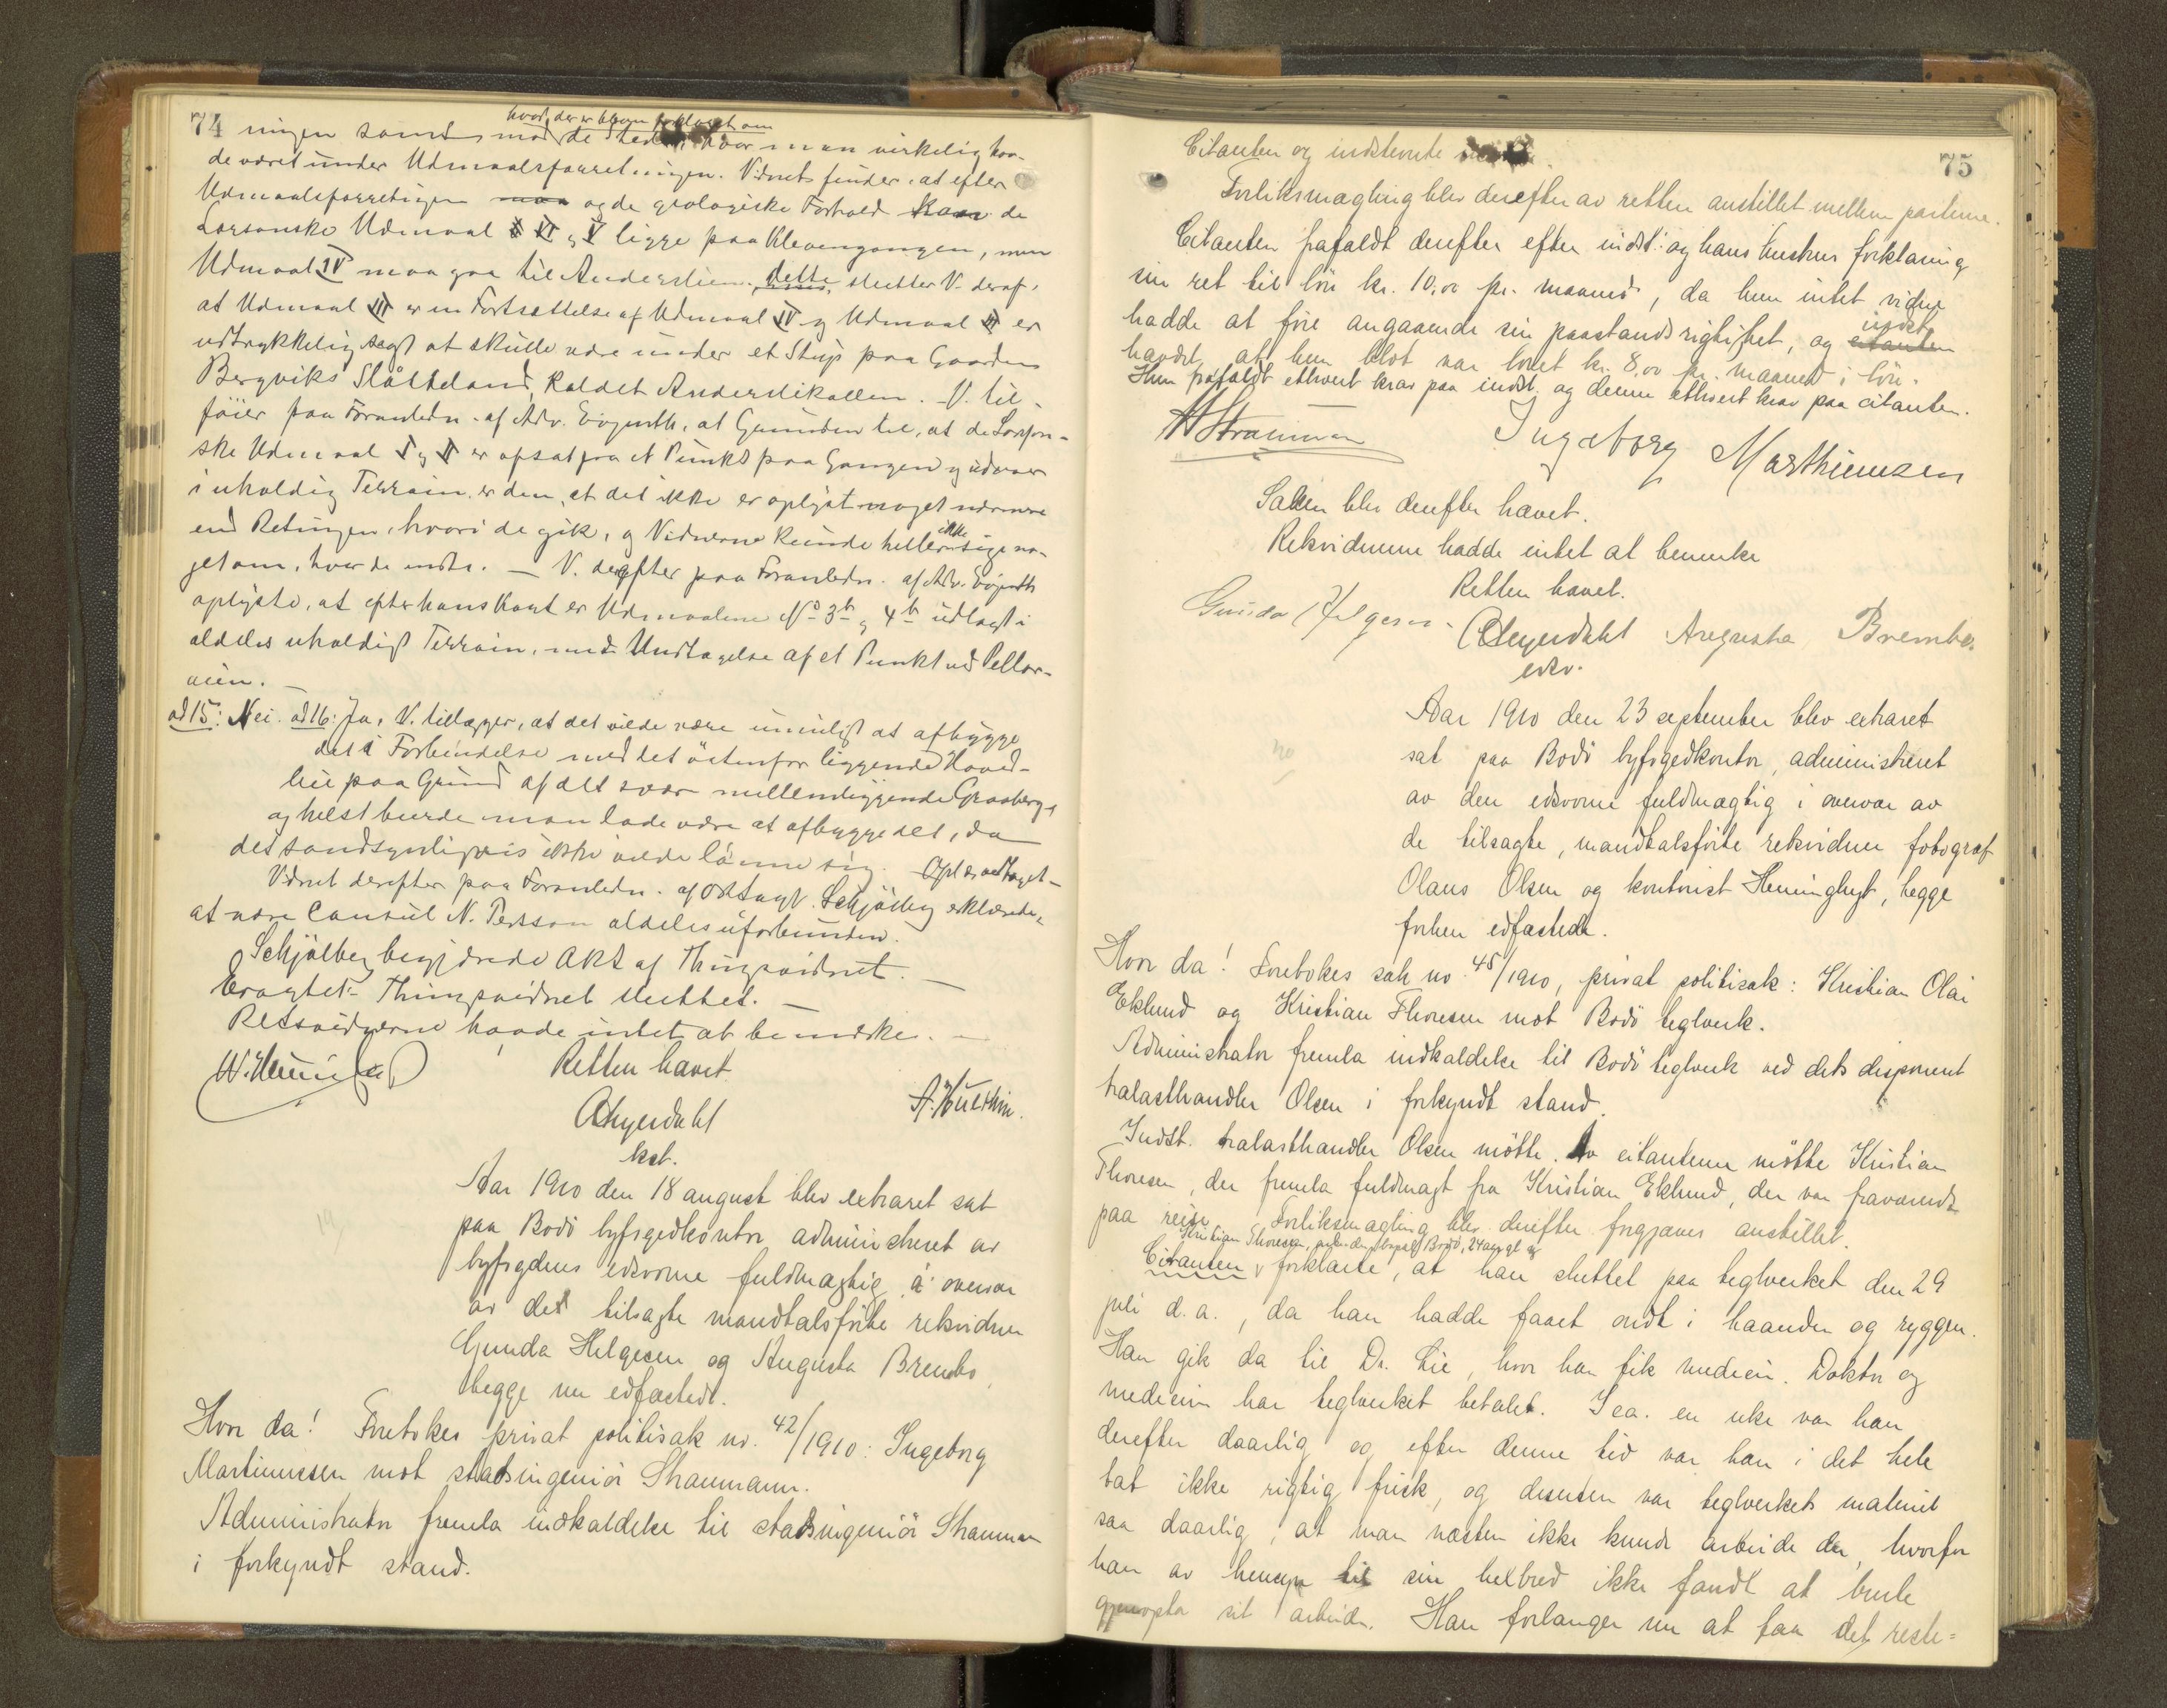 74
hvad der er bleven forklaret om
ningen samt mod de Steder, hvor man virkelig hav-
de været under Udmaalsforretningen. Vidnet finder, at efter
Udmaalsforretningen og de geologiske Forhold kan de
Larsonske Udmaal VI og V ligge paa Klevengangen, men
Udmaal IV maa gaa til Anderslien, dette slutter V. deraf,
at Udmaal III er en Fortsættelse af Udmaal IV og Udmaal II er
udtrykkelig sagt at skulle være under et Stup paa Gaarden
Bergviks Slåtteland, kaldet Anderslikollen. V. til-
føier paa Foranledn. af Adv. Evjenth, at Grunden til, at de Larson-
ske Udmaal I og II er afsat fra et Punkt paa Gangen og udover
i uholdig Terrain, er den, at det ikke er oplyst noget nærmere
end Retningen, hvori de gik, og Vidnerne kunde heller ikke sige no-
get om, hvor de endte. — V. derefter paa Foranledn. af Adv. Evjenth
oplyste, at efter hans Kart er Udmaalene No 3b og 4b udlagt i
aldeles uholdigt Terrain, med Undtagelse af et Punkt ved Pellar-
veien. —
ad 15: Nei. ad 16: Ja, V. tillægger, at det vilde være umuligt at afbygge
det i Forbindelse med det østenfor liggende Hoved-
lie paa Grund af det svær mellemliggende Graaberg,
og helst burde man lade være at afbygge det, da
det sandsynligvis ikke vilde lønne sig. Opl. vedtaget —
Vidnet derefter paa Foranledn. af ORSagf. Schjølberg erklærede,
at være Consul N. Persson aldeles uforbunden.
Schjølberg begjærede Akt af Thingsvidnet. —
Eragtet: Thingsvidnet sluttet. —
Retsvidnerne havde intet at bemærke. —
Retten hævet.
A. Kulthin.
C. Heyerdahl
kst.
19/
Aar 1910 den 18 august blev extraret sat
paa Bodö byfogedkontor administreret av
byfogdens edsvorne fuldmægtig i overvær
av det tilsagte mandtalsförte retsvidner
Gunda Helgesen og Augusta Brembo,
begge nu edfæstede.
Hvor da! Foretokes privat politisak no. 42/1910: Ingeborg
Martinussen mot stadsingeniör Straumann.
Administrator fremla indkaldelse til stadsingeniör Straumann
i forkyndt stand.
75
Citanten og indstevnte
Forliksmægling blev derefter av retten anstillet mellem parterne.
Citanten frafaldt derefter efter indst. og hans hustrus forklaring
sin ret til lön kr. 10,00 pr. maaned, da hun intet videre
hadde at före angaaende sin paastands rigtighet, og citanten indst.
hævdet, at hun blot var lovet kr. 8,00 pr. maaned i lön.
Hun frafaldt ethvert krav paa indst. og denne ethvert krav paa citanten.
Straumann
Ingeborg Marthiunsen
Saken blev derefter hævet.
Retsvidnerne hadde intet at bemerke
Retten hævet.
Gunda Helgesen. C. Heyerdahl Augusta Brembo.
edsv.
20/
Aar 1910 den 23 september blev extraret
sat paa Bodö byfogedkontor, administreret
av den edsvorne fuldmægtig i overvær av
de tilsagte, mandtalsförte retsvidner fotograf
Olaus Olsen og kontorist Henninghuyt, begge
forhen edfæstede.
Hvor da! Foretokes sak no. 45/1910, privat politisak: Kristian Olai
Eklund og Kristian Thoresen mot Bodö teglverk.
Administrator fremla indkaldelse til Bodö teglverk ved dets disponent
trælasthandler Olsen i forkyndt stand.
Indst. trælasthandler Olsen mötte. Av citanterne mötte Kristian
Thoresen, der fremla fuldmagt fra Kristian Eklund, der var fraværende
paa reise. Forliksmægling blev derefter forgjæves anstillet.
Kristian Thoresen, Bodö, 24 aar gl. og
Citanten forklarte, at han sluttet paa teglverket den 29
juli d.a., da han hadde faaet ondt i haanden og ryggen.
Han gik da til Dr. Lie, hvor han fik medicin. Doktor og
medicin har teglverket betalt. I ca. en uke var han
derefter daarlig og efter denne tid var han i det hele
tat ikke rigtig frisk, og desuten var teglverkets materiel
saa daarlig, at man næsten ikke kunde arbeide der, hvorfor
han av hensyn til sin helbred ikke fandt at burde
gjenopta sit arbeide. Han forlanger nu at faa det reste=